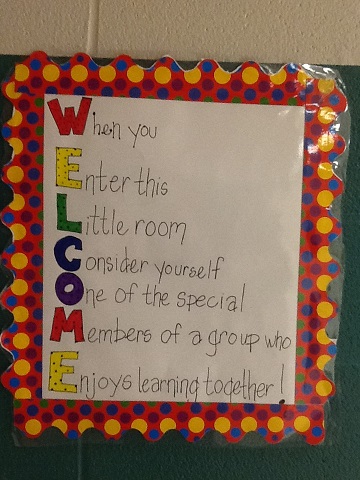 When you
Enter this
Little room
Consider yourself
One of the special
Members of a group who
Enjoys learning together!